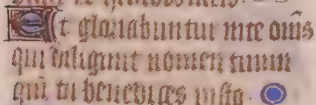 Et gloriabuntur in te om̄s
qui diligunt nomen tuum
qm̄ tu benedices iusto.